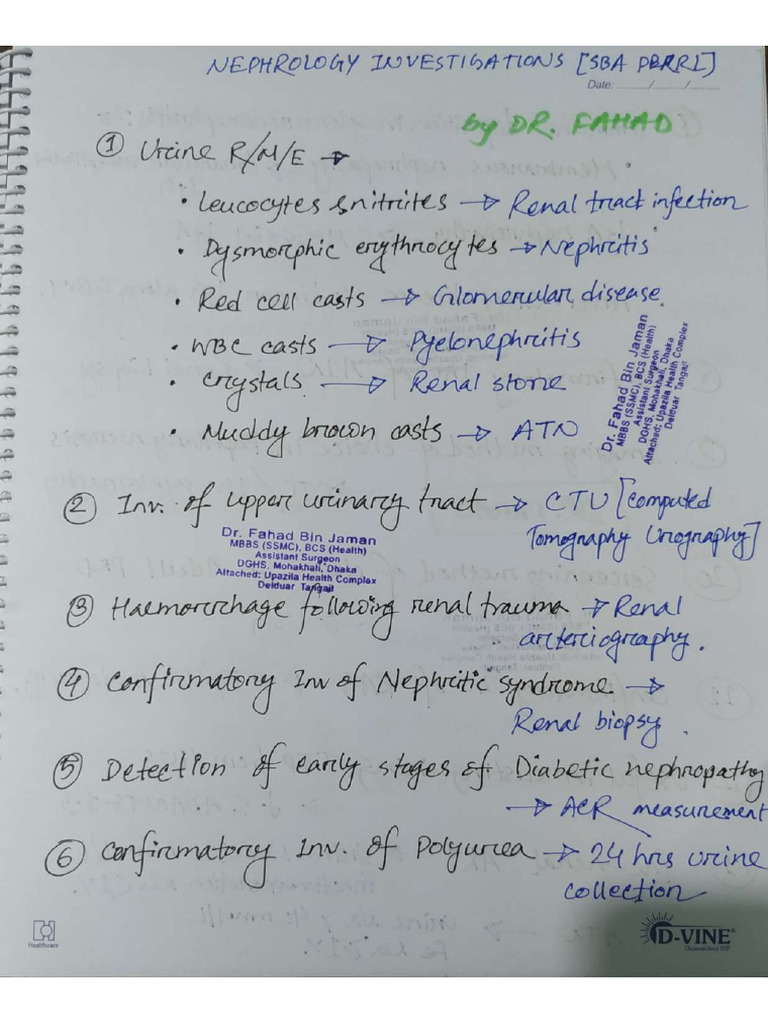 NEPHROLOGY INVESTIGATIONS [SBA PEARL]
Date: ......./......./.......
by DR. FAHAD
① Urine R/M/E →
• Leucocytes & nitrites → Renal tract infection
• Dysmorphic erythrocytes → Nephritis
• Red cell casts → Glomerular disease
• WBC casts → Pyelonephritis
• Crystals → Renal stone
• Muddy brown casts → ATN
Dr. Fahad Bin Jaman
MBBS (SSMC), BCS (Health)
Assistant Surgeon
DGHS, Mohakhali, Dhaka
Attached: Upazila Health Complex
Delduar Tangail
② Inv. of upper urinary tract → CTU [Computed
Tomography Urography]
Dr. Fahad Bin Jaman
MBBS (SSMC), BCS (Health)
Assistant Surgeon
DGHS, Mohakhali, Dhaka
Attached: Upazila Health Complex
Delduar Tangail
③ Haemorrhage following renal trauma → Renal
arteriography.
④ Confirmatory Inv of Nephritic syndrome →
Renal biopsy.
⑤ Detection of early stages of Diabetic nephropathy
→ ACR measurement
⑥ Confirmatory Inv. of Polyurea → 24 hrs urine
collection
Healthcare
D-VINE